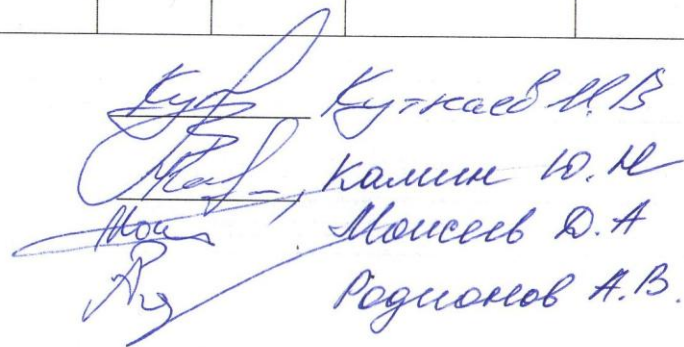 Куткаев И.В
Калин Ю.Н
Моисеев Д.А
Родионов А.В.